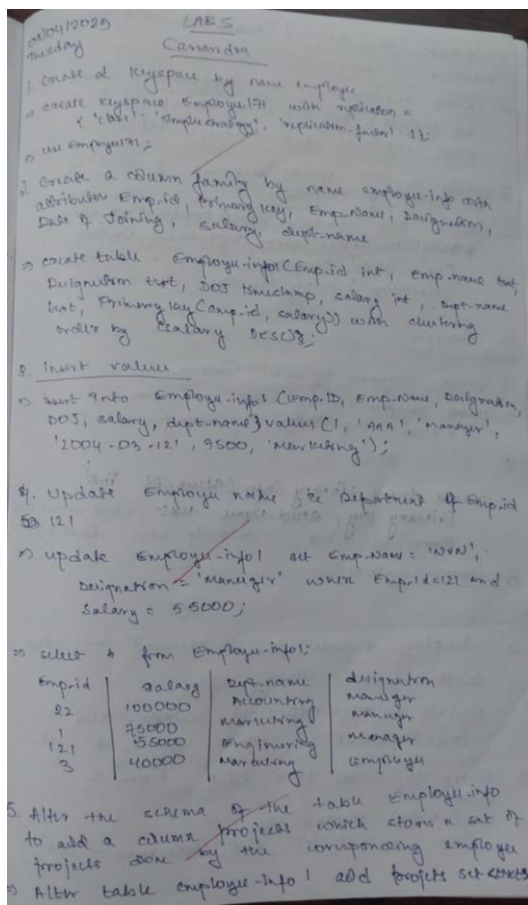 01/04/2025 LAB 5
Tuesday Cassandra
1. create a keyspace by name employee
=> create keyspace Employee171 with replication =
{ 'class': 'simplestrategy', 'replication-factor' 1};
=> use Employee171;
2. Create a column family by name employee-info with
attributes Emp-id, Primary key, Emp-Name, Designation,
Date of Joining, Salary, dept-name
=> create table Employee-info1 (Emp-id int, emp-name text,
Designation text, DOJ timestamp, salary int, Dept-name
text, Primary key (emp-id, salary)) with clustering
order by (salary DESC);
3. Insert values
=> insert into Employee-info1 (Emp-ID, Emp-Name, Designation,
DOJ, salary, dept-name) values (1, 'AAA', 'Manager',
'2004-03-12', 9500, 'Marketing');
4. Update Employee name & Department of Emp-id
121
=> update Employee-info1 set Emp-Name = 'NVN',
Designation = 'Manager' where Emp-id=121 and
Salary = 55000;
=> select * from Employee-info1;
Emp-id | salary | Dept-name | designation
22 | 100000 | Accounting | Manager
1 | 75000 | Marketing | Manager
121 | 55000 | Enginering | Manager
3 | 40000 | Marketing | Employee
5. Alter the schema of the table Employee-info
to add a column projects which stores a set of
projects done by the corresponding employee
=> Alter table employee-info1 add projets set <text>